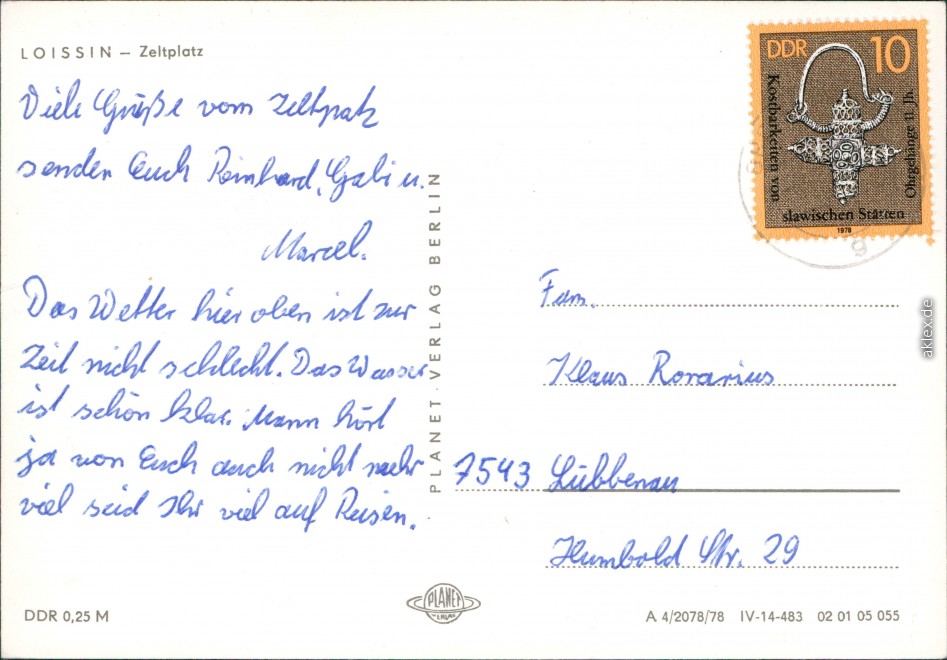 LOISSIN – Zeltplatz
Viele Grüße vom Zeltpatz
senden Euch Reinhard, Gabi u.
Marcel.
Das Wetter hier oben ist zur
Zeit nicht schlecht. Das Wasser
ist schön klar. Mann hört
ja von Euch auch nicht mehr
viel seid Ihr viel auf Reisen.
PLANET-VERLAG BERLIN
DDR 10
Kostbarkeiten von
slawischen Stätten
Ohrgehänge 11. Jh.
1978
Fam.
Klaus Rorarius
7543 Lübbenau
Humbold Str. 29
DDR 0,25 M
PLANET
VERLAG
A 4/2078/78 IV-14-483 02 01 05 055
aklex.de